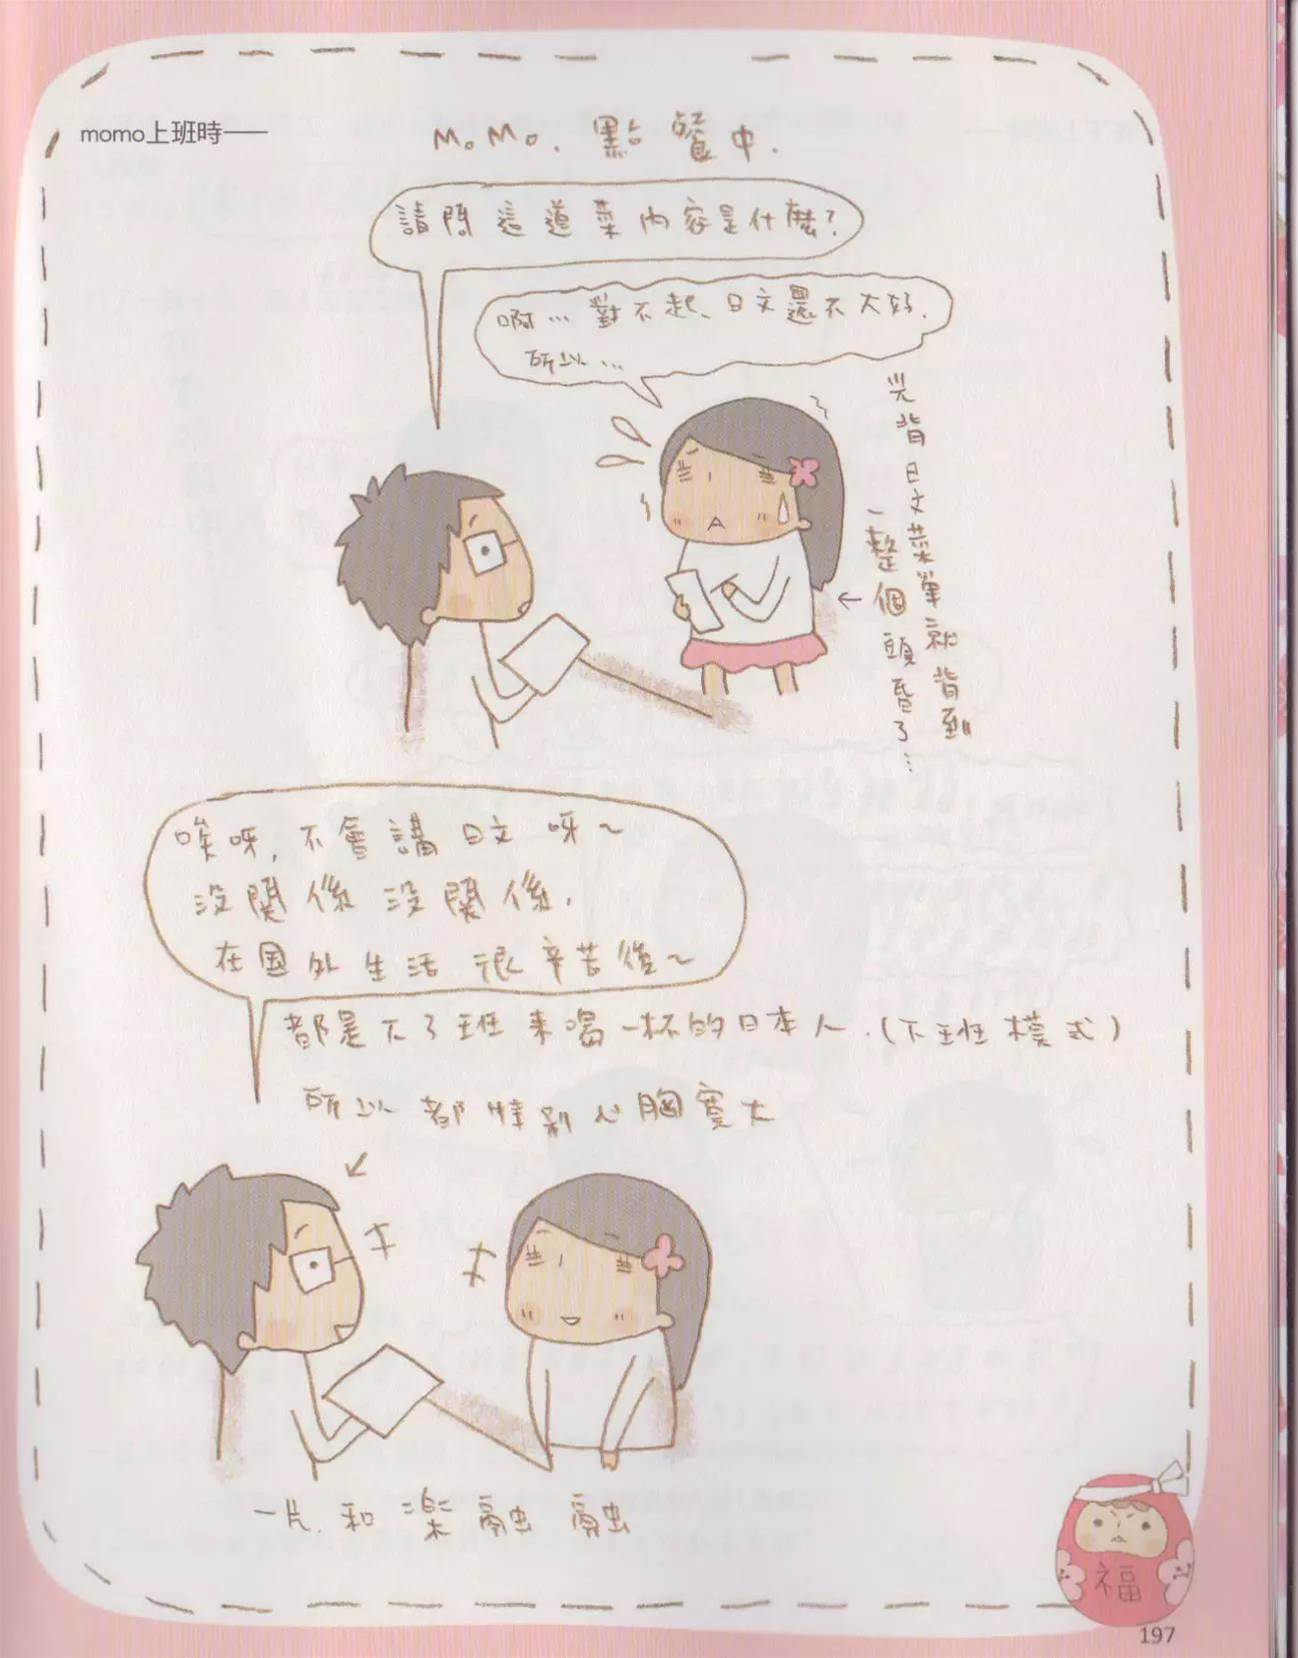 momo上班時——
MoMo. 點餐中.
請問這道菜內容是什麼?
啊…對不起、日文還不太好.
所以…
光背日文菜單就背到
一整個頭昏了…
唉呀,不會講日文呀~
沒關係沒關係,
在国外生活很辛苦後~
都是下了班来喝一杯的日本人.(下班模式)
所以都特別心胸寬大
一片.和楽融融
福
197